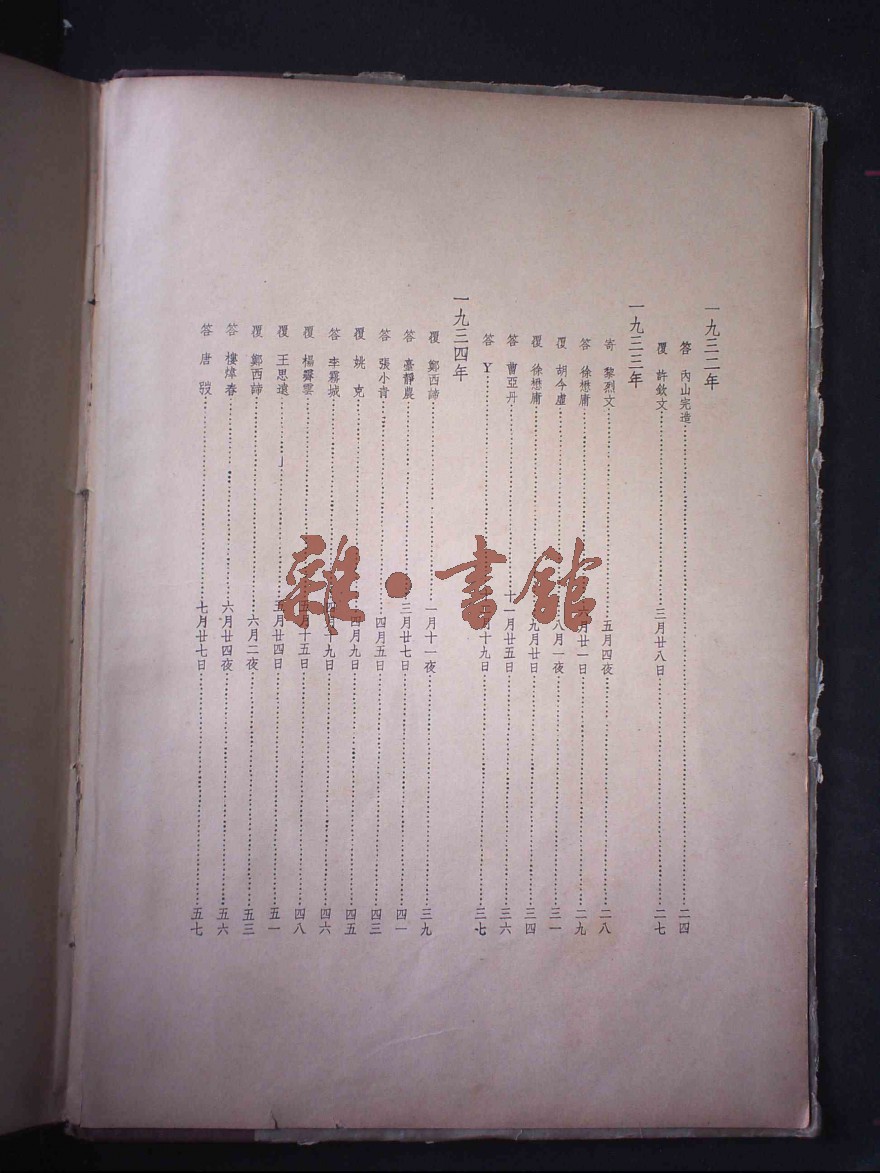 一九三二年
答 內山完造……二四
覆 許欽文……三月廿八日……二七
一九三三年
寄 黎烈文……五月四夜……二八
答 徐懋庸……月廿一日……二九
覆 胡今虛……八月一夜……三一
覆 徐懋庸……九月廿日……三四
答 曹亞丹……十一月廿五日……三六
答 Y……月十九日……三七
一九三四年
覆 鄭西諦……一月十一夜……三九
答 臺靜農……三月廿七日……四一
答 張小青……四月五日……四三
覆 姚克……四月九日……四五
答 李霧城……月十九日……四六
覆 楊霽雲……五月十五日……四八
覆 王思遠……五月廿四日……五一
覆 鄭西諦……六月二夜……五三
答 樓煒春……六月廿四夜……五六
答 唐弢……七月廿七日……五七
雜·書館